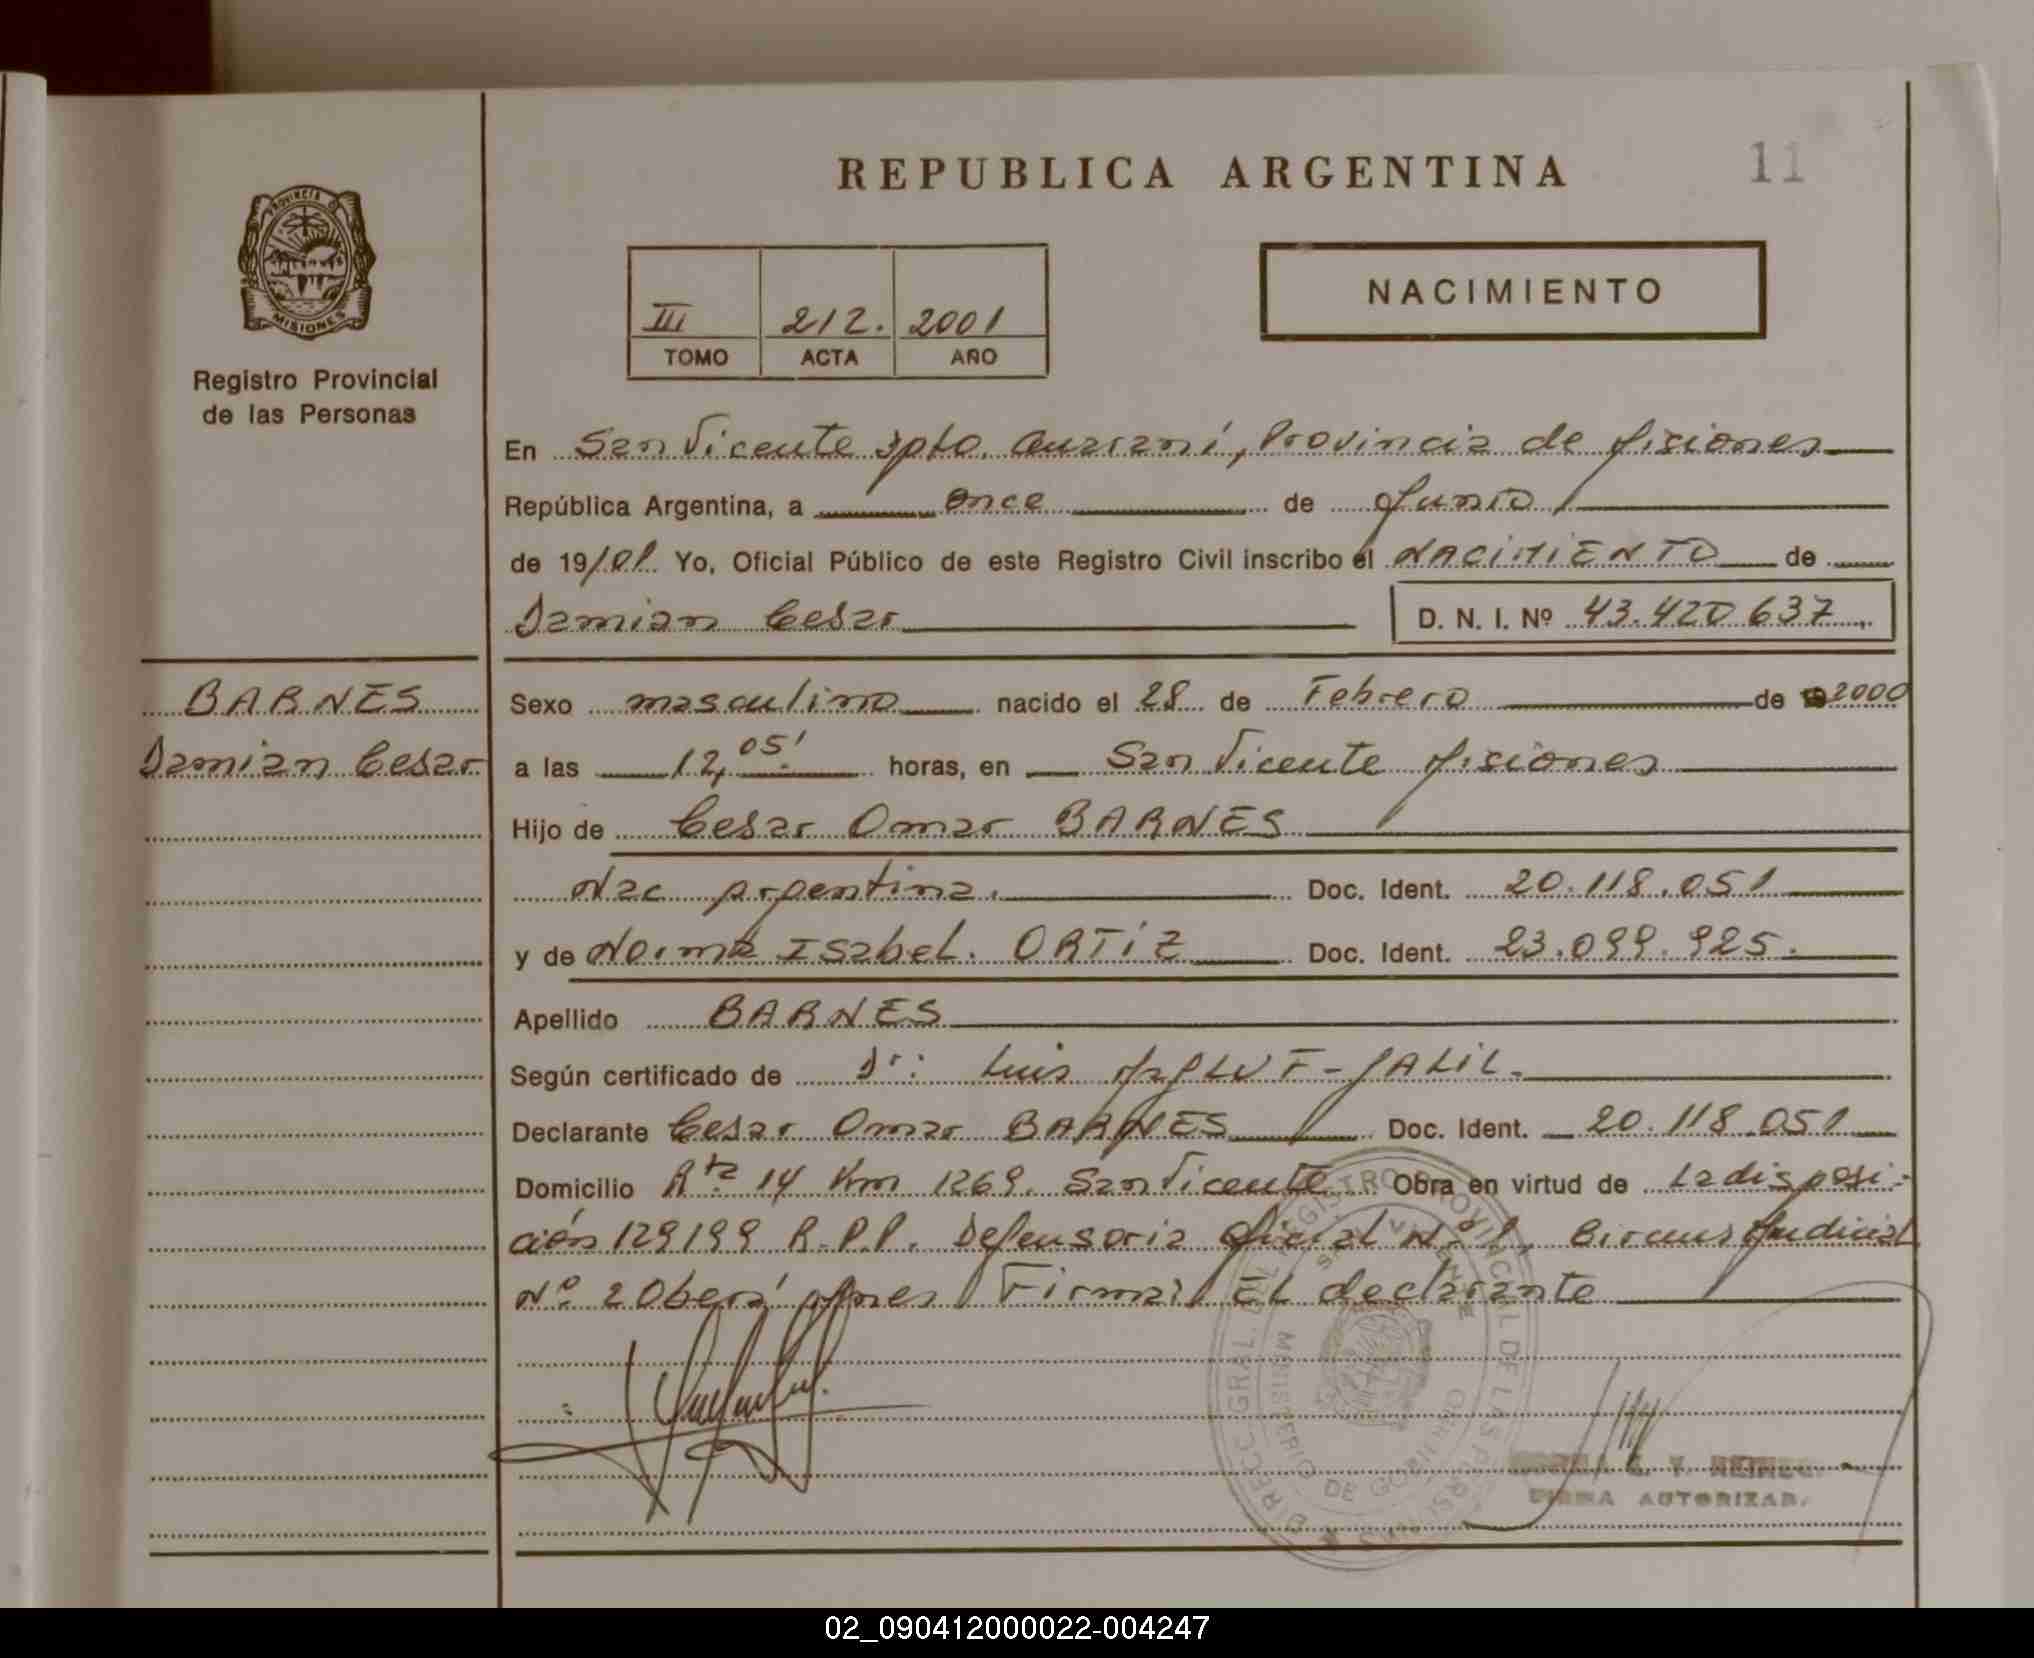 REPUBLICA ARGENTINA
11
PROVINCIA D
MISIONES
Registro Provincial
de las Personas
III 212. 2001
TOMO ACTA AÑO
NACIMIENTO
En San Vicente Dpto. Guaraní, Provincia de Misiones
República Argentina, a once de Junio
de 19/01 Yo, Oficial Público de este Registro Civil inscribo el NACIMIENTO de
Damian Cesar
D. N. I. Nº 43.420.637
BARNES
Damian Cesar
Sexo masculino nacido el 28 de Febrero de 2000
a las 12,05' horas, en San Vicente Misiones
Hijo de Cesar Omar BARNES
Nac Argentina. Doc. Ident. 20.118.051
y de Norma Isabel. ORTIZ Doc. Ident. 23.099.925.
Apellido BARNES
Según certificado de Dr: Luis JALIL.
Declarante Cesar Omar BARNES Doc. Ident. 20.118.051
Domicilio Rta 14 Km 1269. San Vicente Obra en virtud de La disposi-
ción 129199 R.P.P. Defensoria Oficial Nº 1, Circuns Judicial
Nº 2 Oberá Mnes Firma: El declarante
DIRECC. GRAL. DEL REGISTRO PROVINCIAL DE LAS PERSONAS
MINISTERIO DE GOBIERNO
SAN VICENTE
FIRMA AUTORIZAD.
02_090412000022-004247